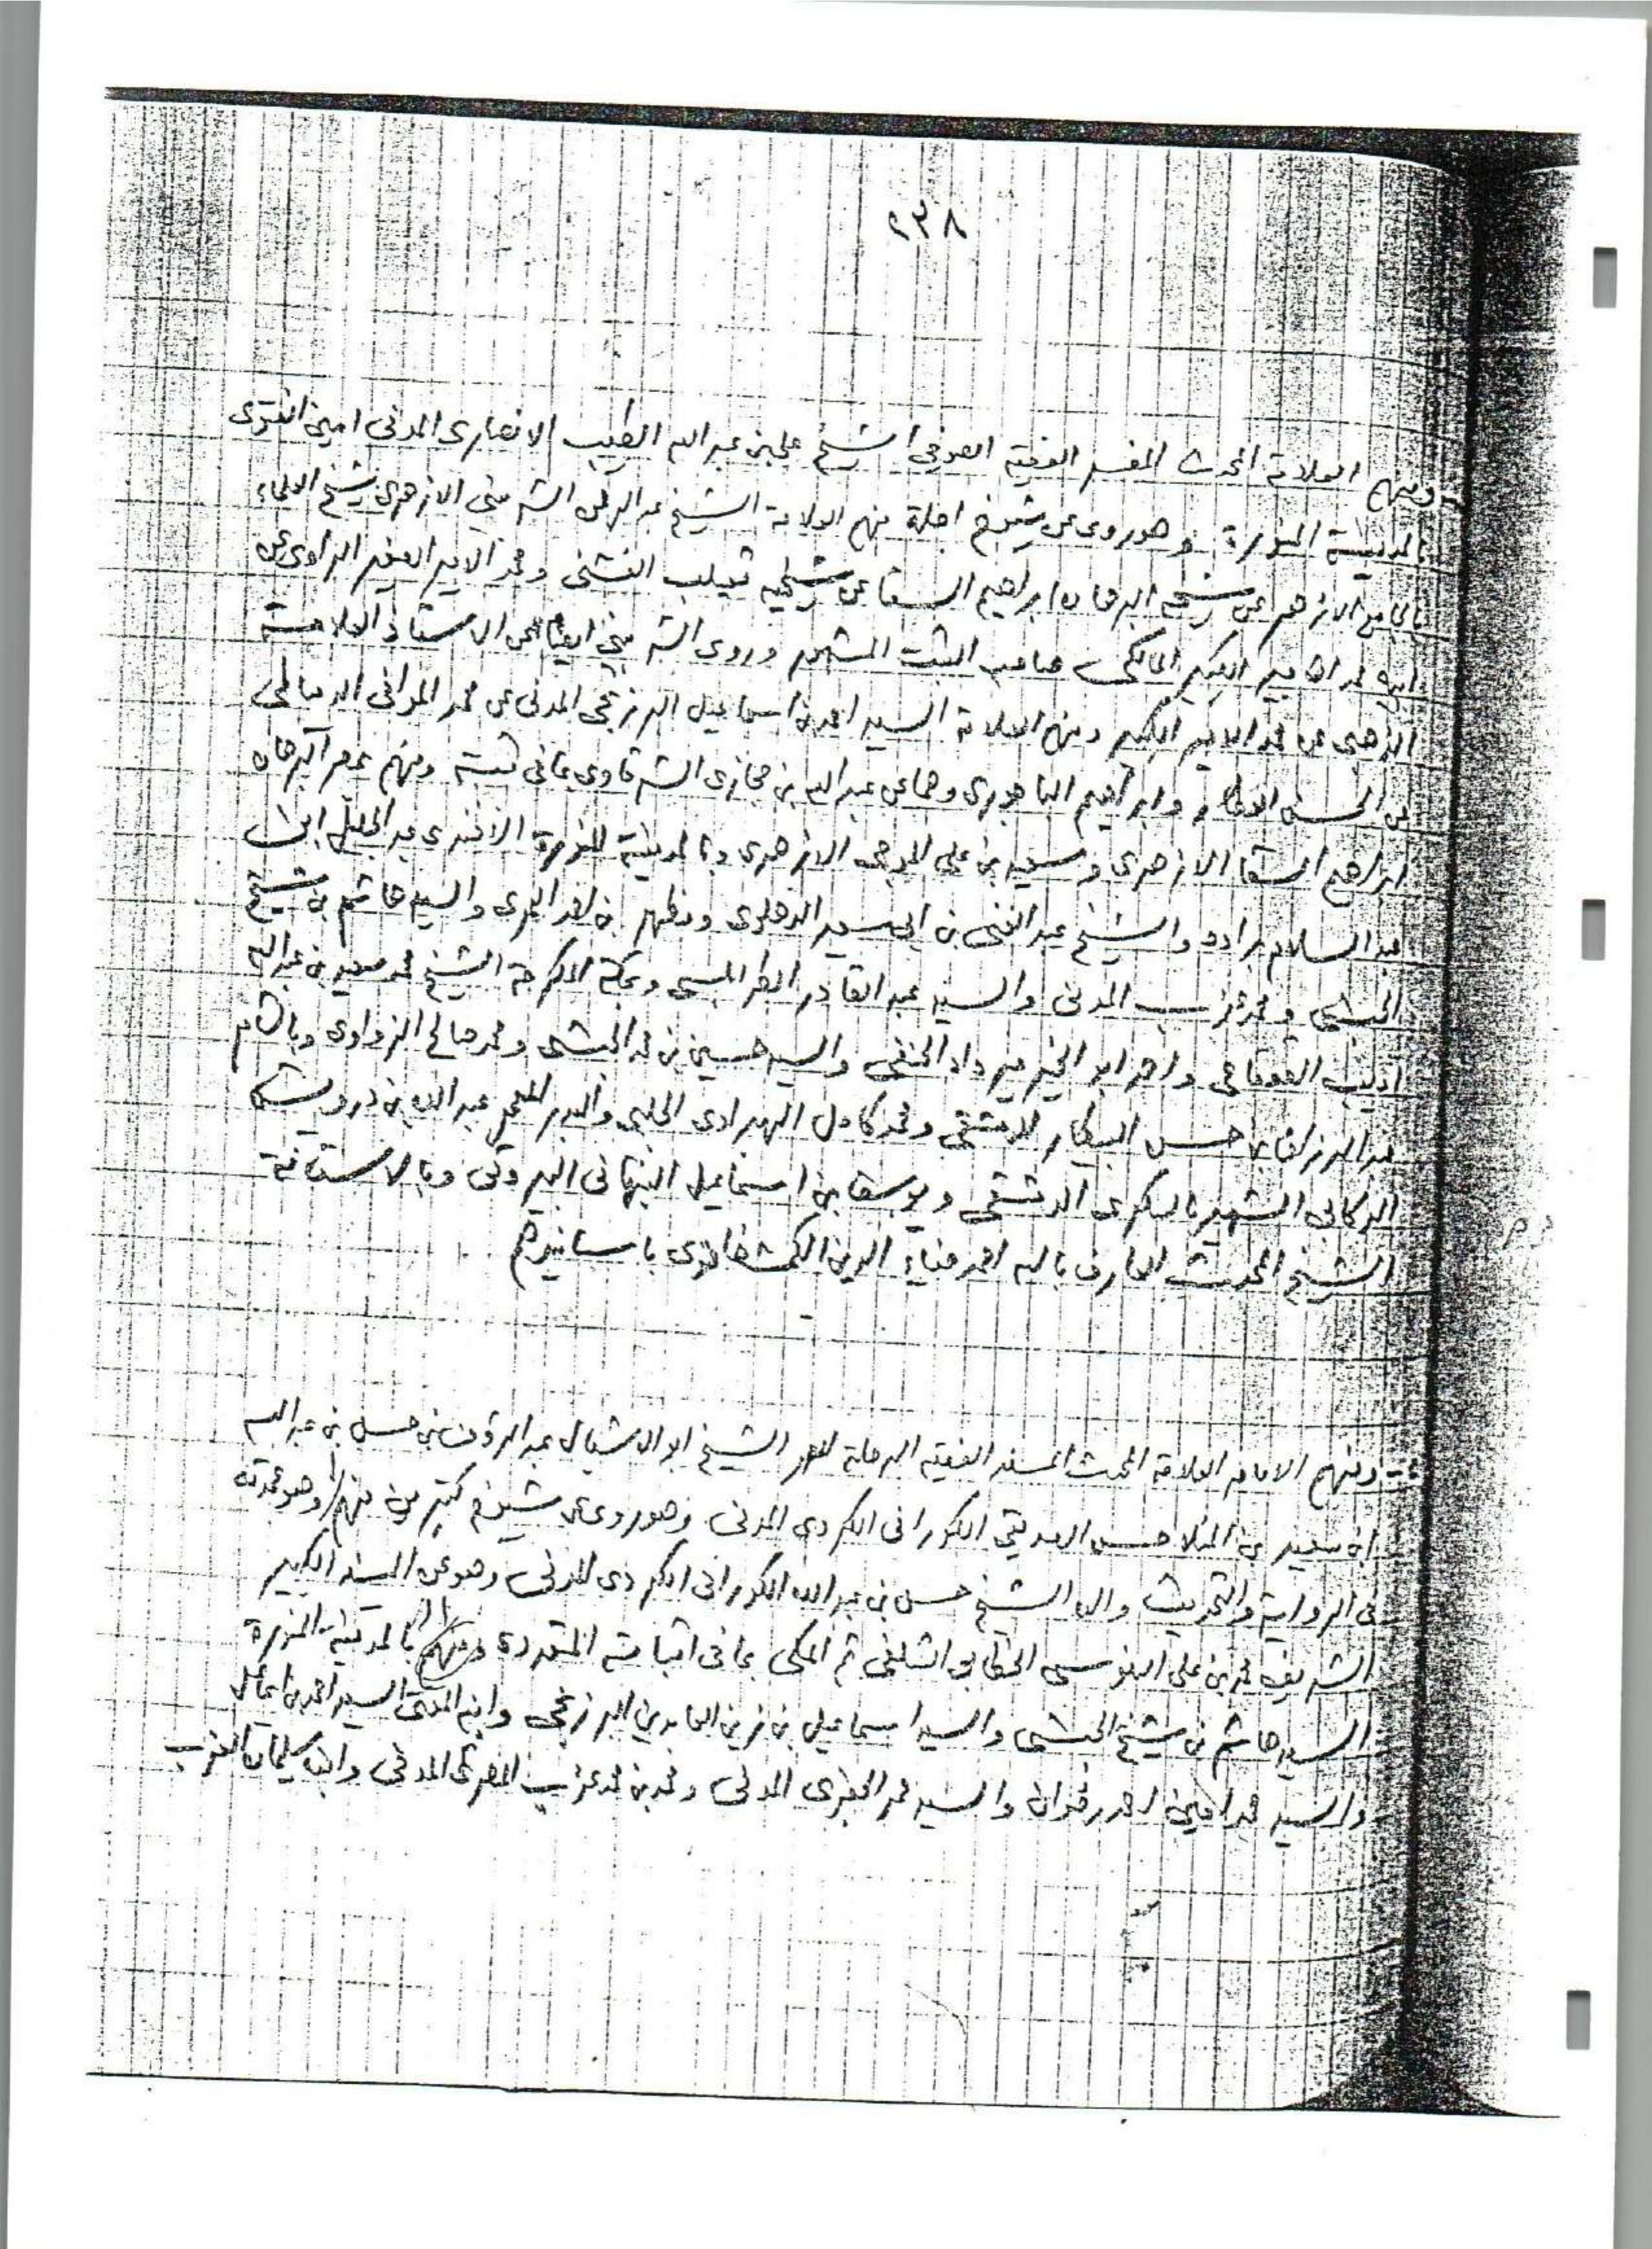 ٢٣٨
ومنهم العلامة المحدث المفسر الفقيه الصوفي الشيخ علي بن عبد الله الطيب الانصاري المدني امين الفتوى
بالمدينة المنورة وهو روى عن شيوخ اجلة منهم العلامة الشيخ عبد الرحمن الشربيني الازهري شيخ العلماء
بالجامع الازهر عن شيخه البرهان ابراهيم السقا عن شيخيه ثعيلب الفشني ومحمد الامير الصغير الراوي عن
ابيه محمد الامير الكبير المالكي صاحب الثبت المشهور وروى الشربيني ايضا عن الاستاذ العلامة
الذهبي عن محمد الامير الكبير ومنهم العلامة السيد احمد بن اسماعيل البرزنجي المدني عن محمد الموافي الدمياطي
عن الحسن العطار وابراهيم الباجوري وهما عن عبد الله بن حجازي الشرقاوي بما في ثبته ومنهم بمصر البرهان
ابراهيم السقا الازهري وسعيد بن علي الموجي الازهري وبالمدينة المنورة الافندي عبد الجليل ابن
عبد السلام براده والشيخ عبد الغني بن ابي سعيد الدهلوي ومظهر بن احمد والسيد هاشم بن شيخ
الحبشي ومحمد عزب المدني والسيد عبد القادر الطرابلسي وبمكة المكرمة الشيخ محمد سعيد بن عبد الله
اديب القعقاعي واحمد ابو الخير مير داد الحنفي والسيد حسين بن محمد الحبشي ومحمد صالح الزواوي وبالشام
عبد الرزاق بن حسن البيطار الدمشقي ومحمد كامل الهبراوي الحلبي والبدر المعمر عبد الله بن درويش
الركابي الشهير بالسكري الدمشقي ويوسف بن اسماعيل النبهاني البيروتي وبالاستانة
الشيخ المحدث العارف بالله احمد ضياء الدين الكمشخانوي باسانيدهم
ومنهم الامام العلامة المحدث المسند الفقيه الرحلة المعمر الشيخ ابو الاشبال عبد الرؤوف بن حسن بن عبد الله
ابن سعيد بن الملا حسن الصديقي الكوراني الكردي المدني وهو روى عن شيوخ كثيرين منهم وهو عمدته
في الرواية والتحديث والده الشيخ حسن بن عبد الله الكوراني الكردي المدني وهو عن المسند الكبير
الشريف محمد بن علي السنوسي الخطابي الشلفي ثم المكي بما في اثباته المتعددة ومنهم بالمدينة المنورة
السيد هاشم بن شيخ الحبشي والسيد اسماعيل بن زين العابدين البرزنجي وابنه المفتي السيد احمد بن اسماعيل
والسيد محمد امين احمد رضوان والسيد محمد الجفري المدني ومحمد بن محمد عزب المصري المدني